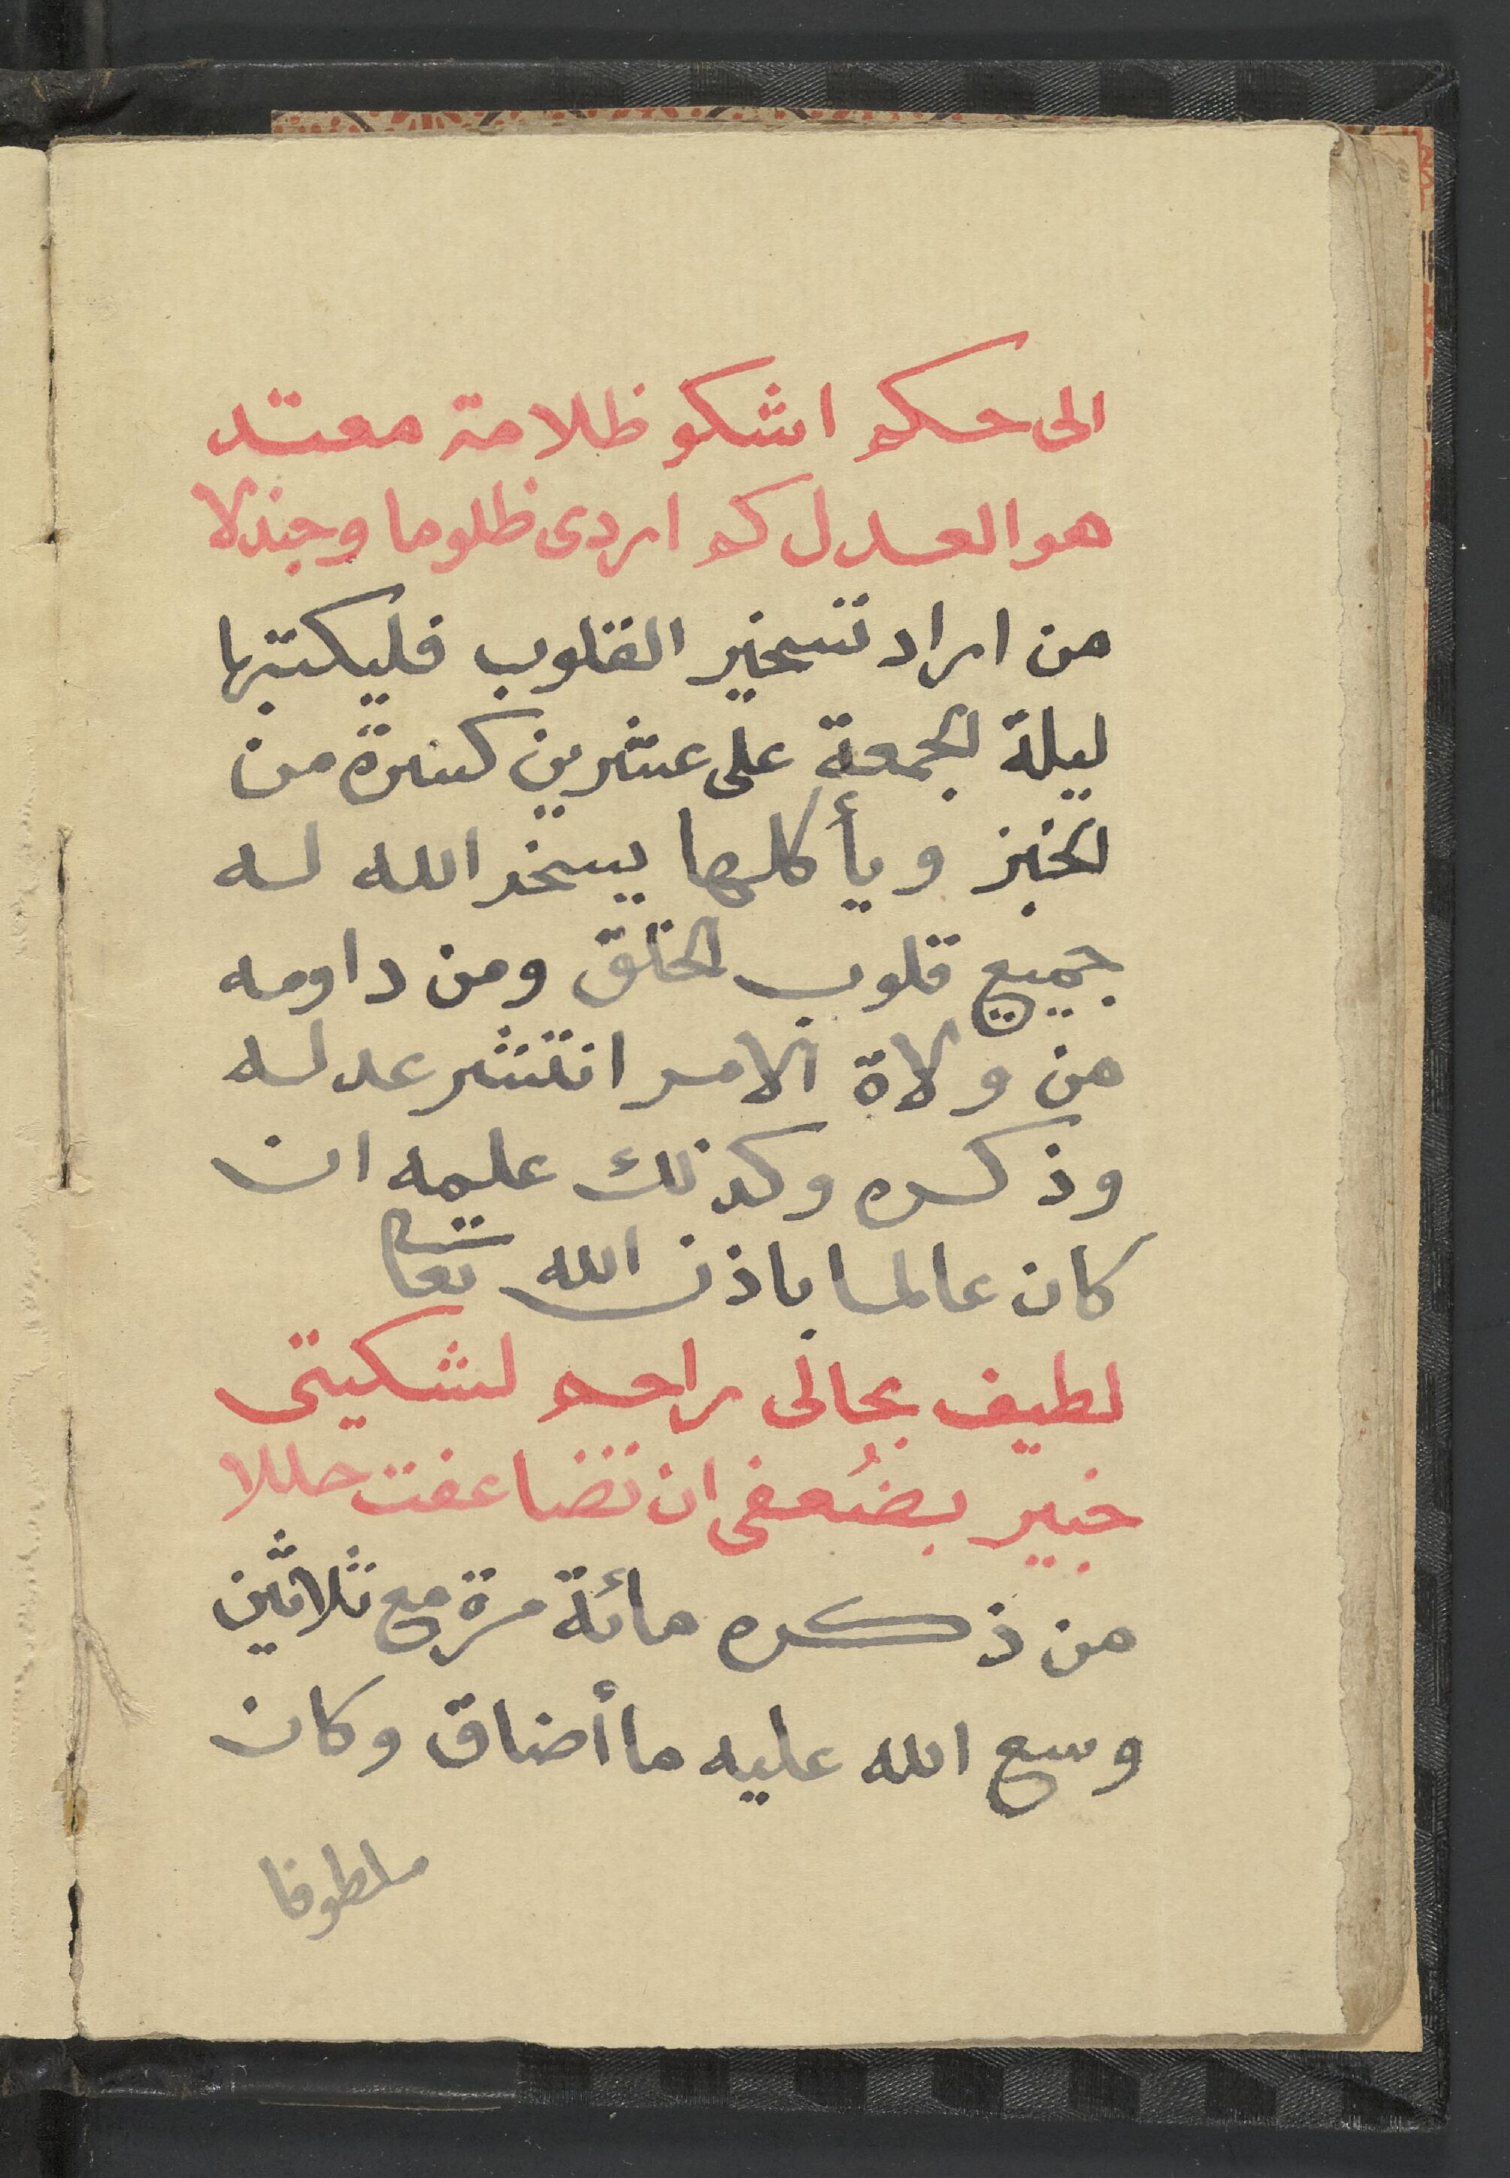 الى حكم اشكو ظلامة معتد
هو العدل كم اردى ظلوما وجندلا
من اراد تسخير القلوب فليكتبها
ليلة الجمعة على عشرين كسرة من
الخبز ويأكلها يسخر الله له
جميع قلوب الخلق ومن داومه
من ولاة الامر انتشر عدله
وذكره وكذلك علمه ان
كان عالما باذن الله تعالى
لطيف بحالى راحم لشكيتى
خبير بضُعفى ان تضاعفت حللا
من ذكره مائة مرة مع ثلاثين
وسع الله عليه ما أضاق وكان
ملطوفا